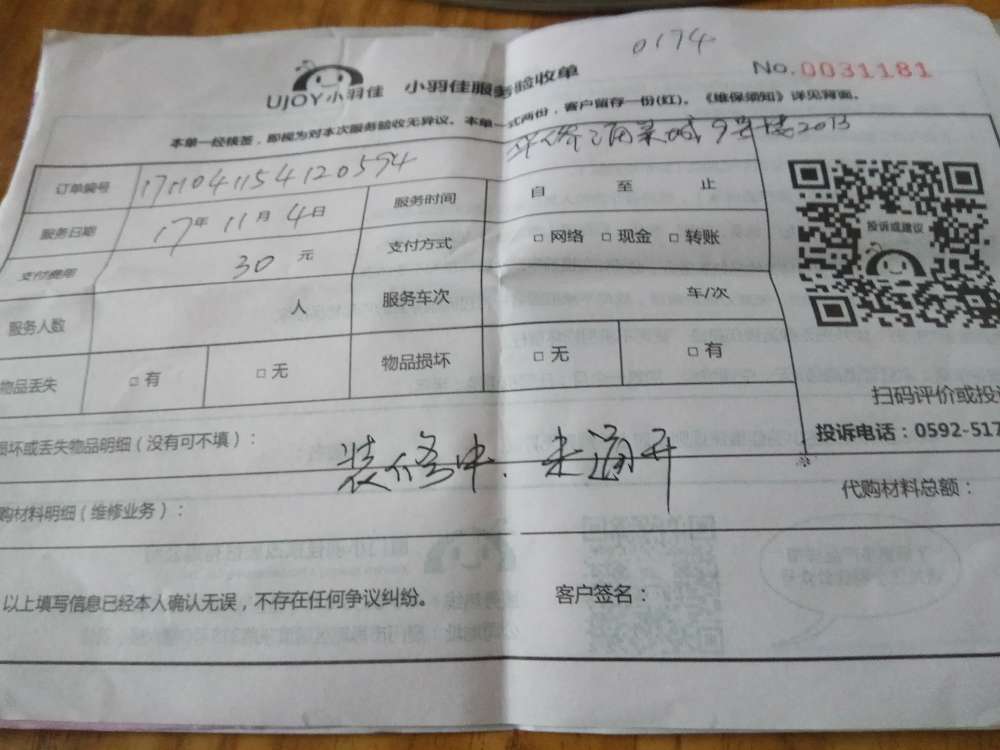 0174
UJOY小羽佳 小羽佳服务验收单 No.0031181
本单一经核签，即视为对本次服务验收无异议。本单一式两份，客户留存一份(红)。《维保须知》详见背面。
订单编号 1711041154120594 9号楼2013
服务日期 17年 11月 4日 服务时间 自 至 止
支付费用 30 元 支付方式 □ 网络 □ 现金 □ 转账
服务人数 人 服务车次 车/次
物品丢失 □ 有 □ 无 物品损坏 □ 无 □ 有
投诉或建议
扫码评价或投诉
投诉电话：0592-517
损坏或丢失物品明细（没有可不填）：
装修中.未通开
代购材料总额：
购材料明细（维修业务）：
以上填写信息已经本人确认无误，不存在任何争议纠纷。 客户签名：